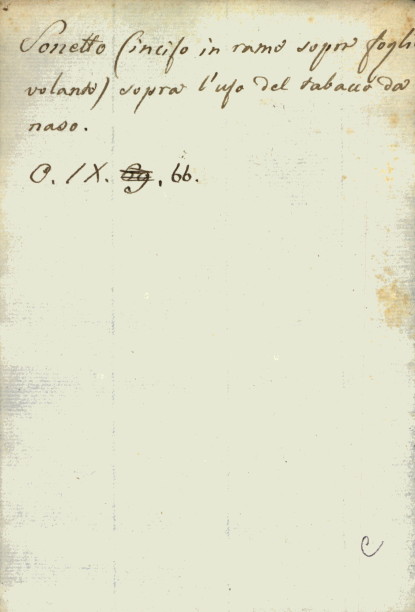 Sonetto (inciso in rame sopra fogli
volante) sopra l'uso del tabacco da
naso.
O. IX. 66.
C